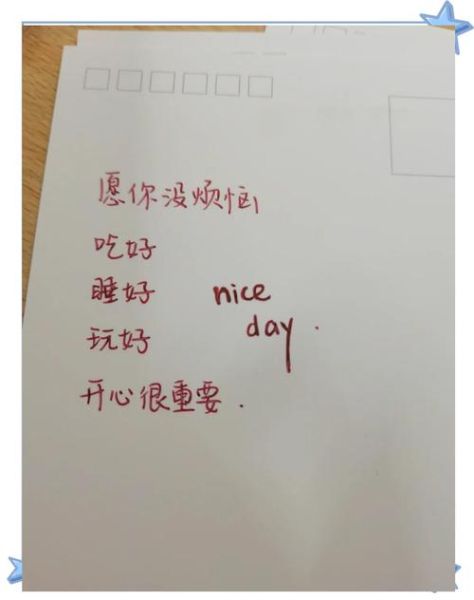 愿你没烦恼
吃好
睡好
nice
玩好
day.
开心很重要.